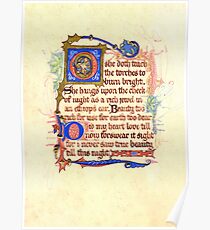 O she doth teach
the torches to
burn bright.
She hangs upon the cheek
of night as a rich jewel in
an ethiops ear. Beauty too
rich for use for earth too dear
Did my heart love till
now forswear it sight
for I never saw true beauty
till this night.